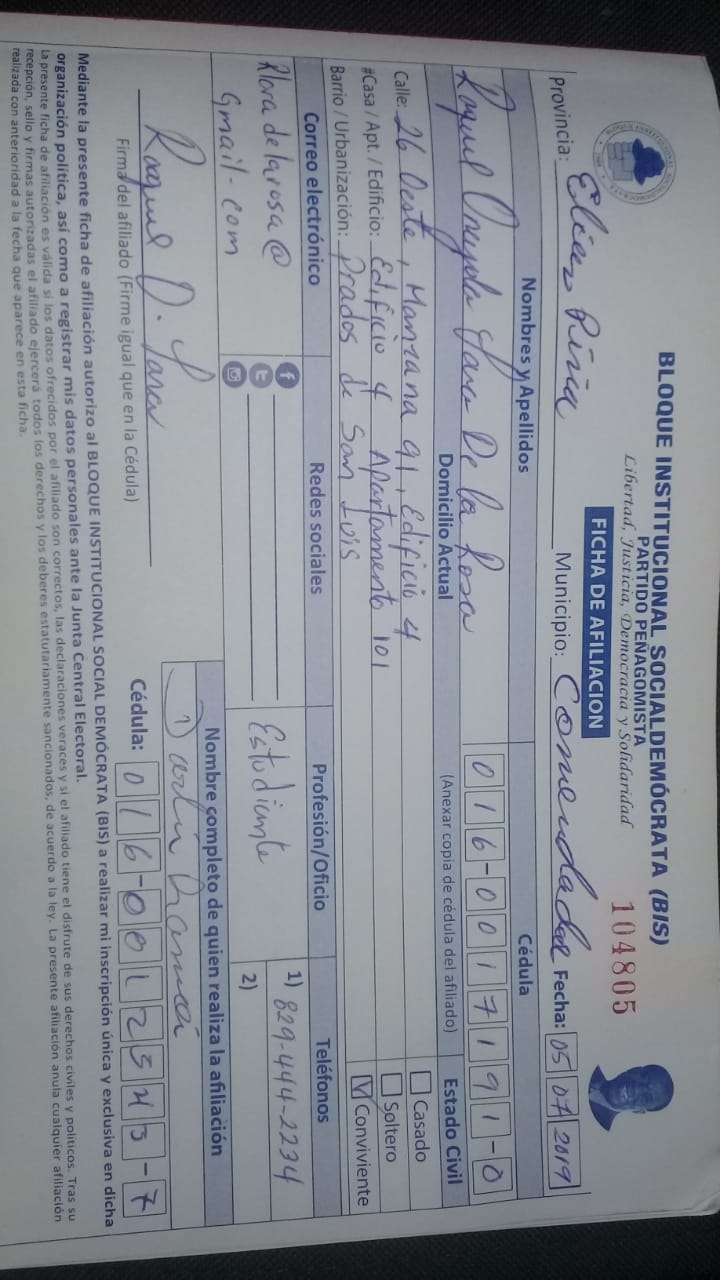 BLOQUE INSTITUCIONAL SOCIALDEMÓCRATA (BIS)
PARTIDO PEÑAGOMISTA
Libertad, Justicia, Democracia y Solidaridad
FICHA DE AFILIACION
104805
Provincia: Elias Piña Municipio: Comendador Fecha: 05 07 2019
Nombres y Apellidos Cédula
Raquel Lara De la Rosa 016-0017191-0
Domicilio Actual (Anexar copia de cédula del afiliado) Estado Civil
Calle: 26 Oeste, Manzana 91, Edificio 4 Casado
#Casa / Apt. / Edificio: Edificio 4 Apartamento 101 Soltero
Barrio / Urbanización: Prados de San Luis Conviviente
Correo electrónico Redes sociales Profesión/Oficio Teléfonos
Rlaradelarosa@ Estudiante 1) 829-444-2234
gmail-com 2)
Nombre completo de quien realiza la afiliación
Raquel O. Lara
Firma del afiliado (Firme igual que en la Cédula) Cédula: 016-0012543-7
Mediante la presente ficha de afiliación autorizo al BLOQUE INSTITUCIONAL SOCIAL DEMÓCRATA (BIS) a realizar mi inscripción única y exclusiva en dicha
organización política, así como a registrar mis datos personales ante la Junta Central Electoral.
La presente ficha de afiliación es válida si los datos ofrecidos por el afiliado son correctos, las declaraciones veraces y si el afiliado tiene el disfrute de sus derechos civiles y políticos. Tras su
recepción, sello y firmas autorizadas el afiliado ejercerá todos los derechos y los deberes estatutariamente sancionados, de acuerdo a la ley. La presente afiliación anula cualquier afiliación
realizada con anterioridad a la fecha que aparece en esta ficha.